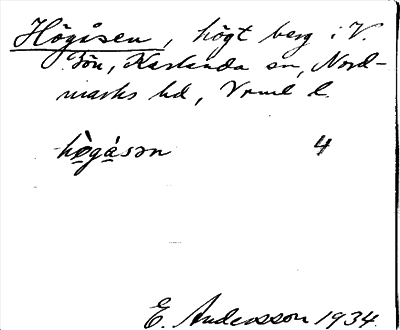 Högåsen, högt berg i V.
Fön, Karlanda sn, Nord-
marks hd, Vrml l.
hògásən 4
E. Andersson 1934